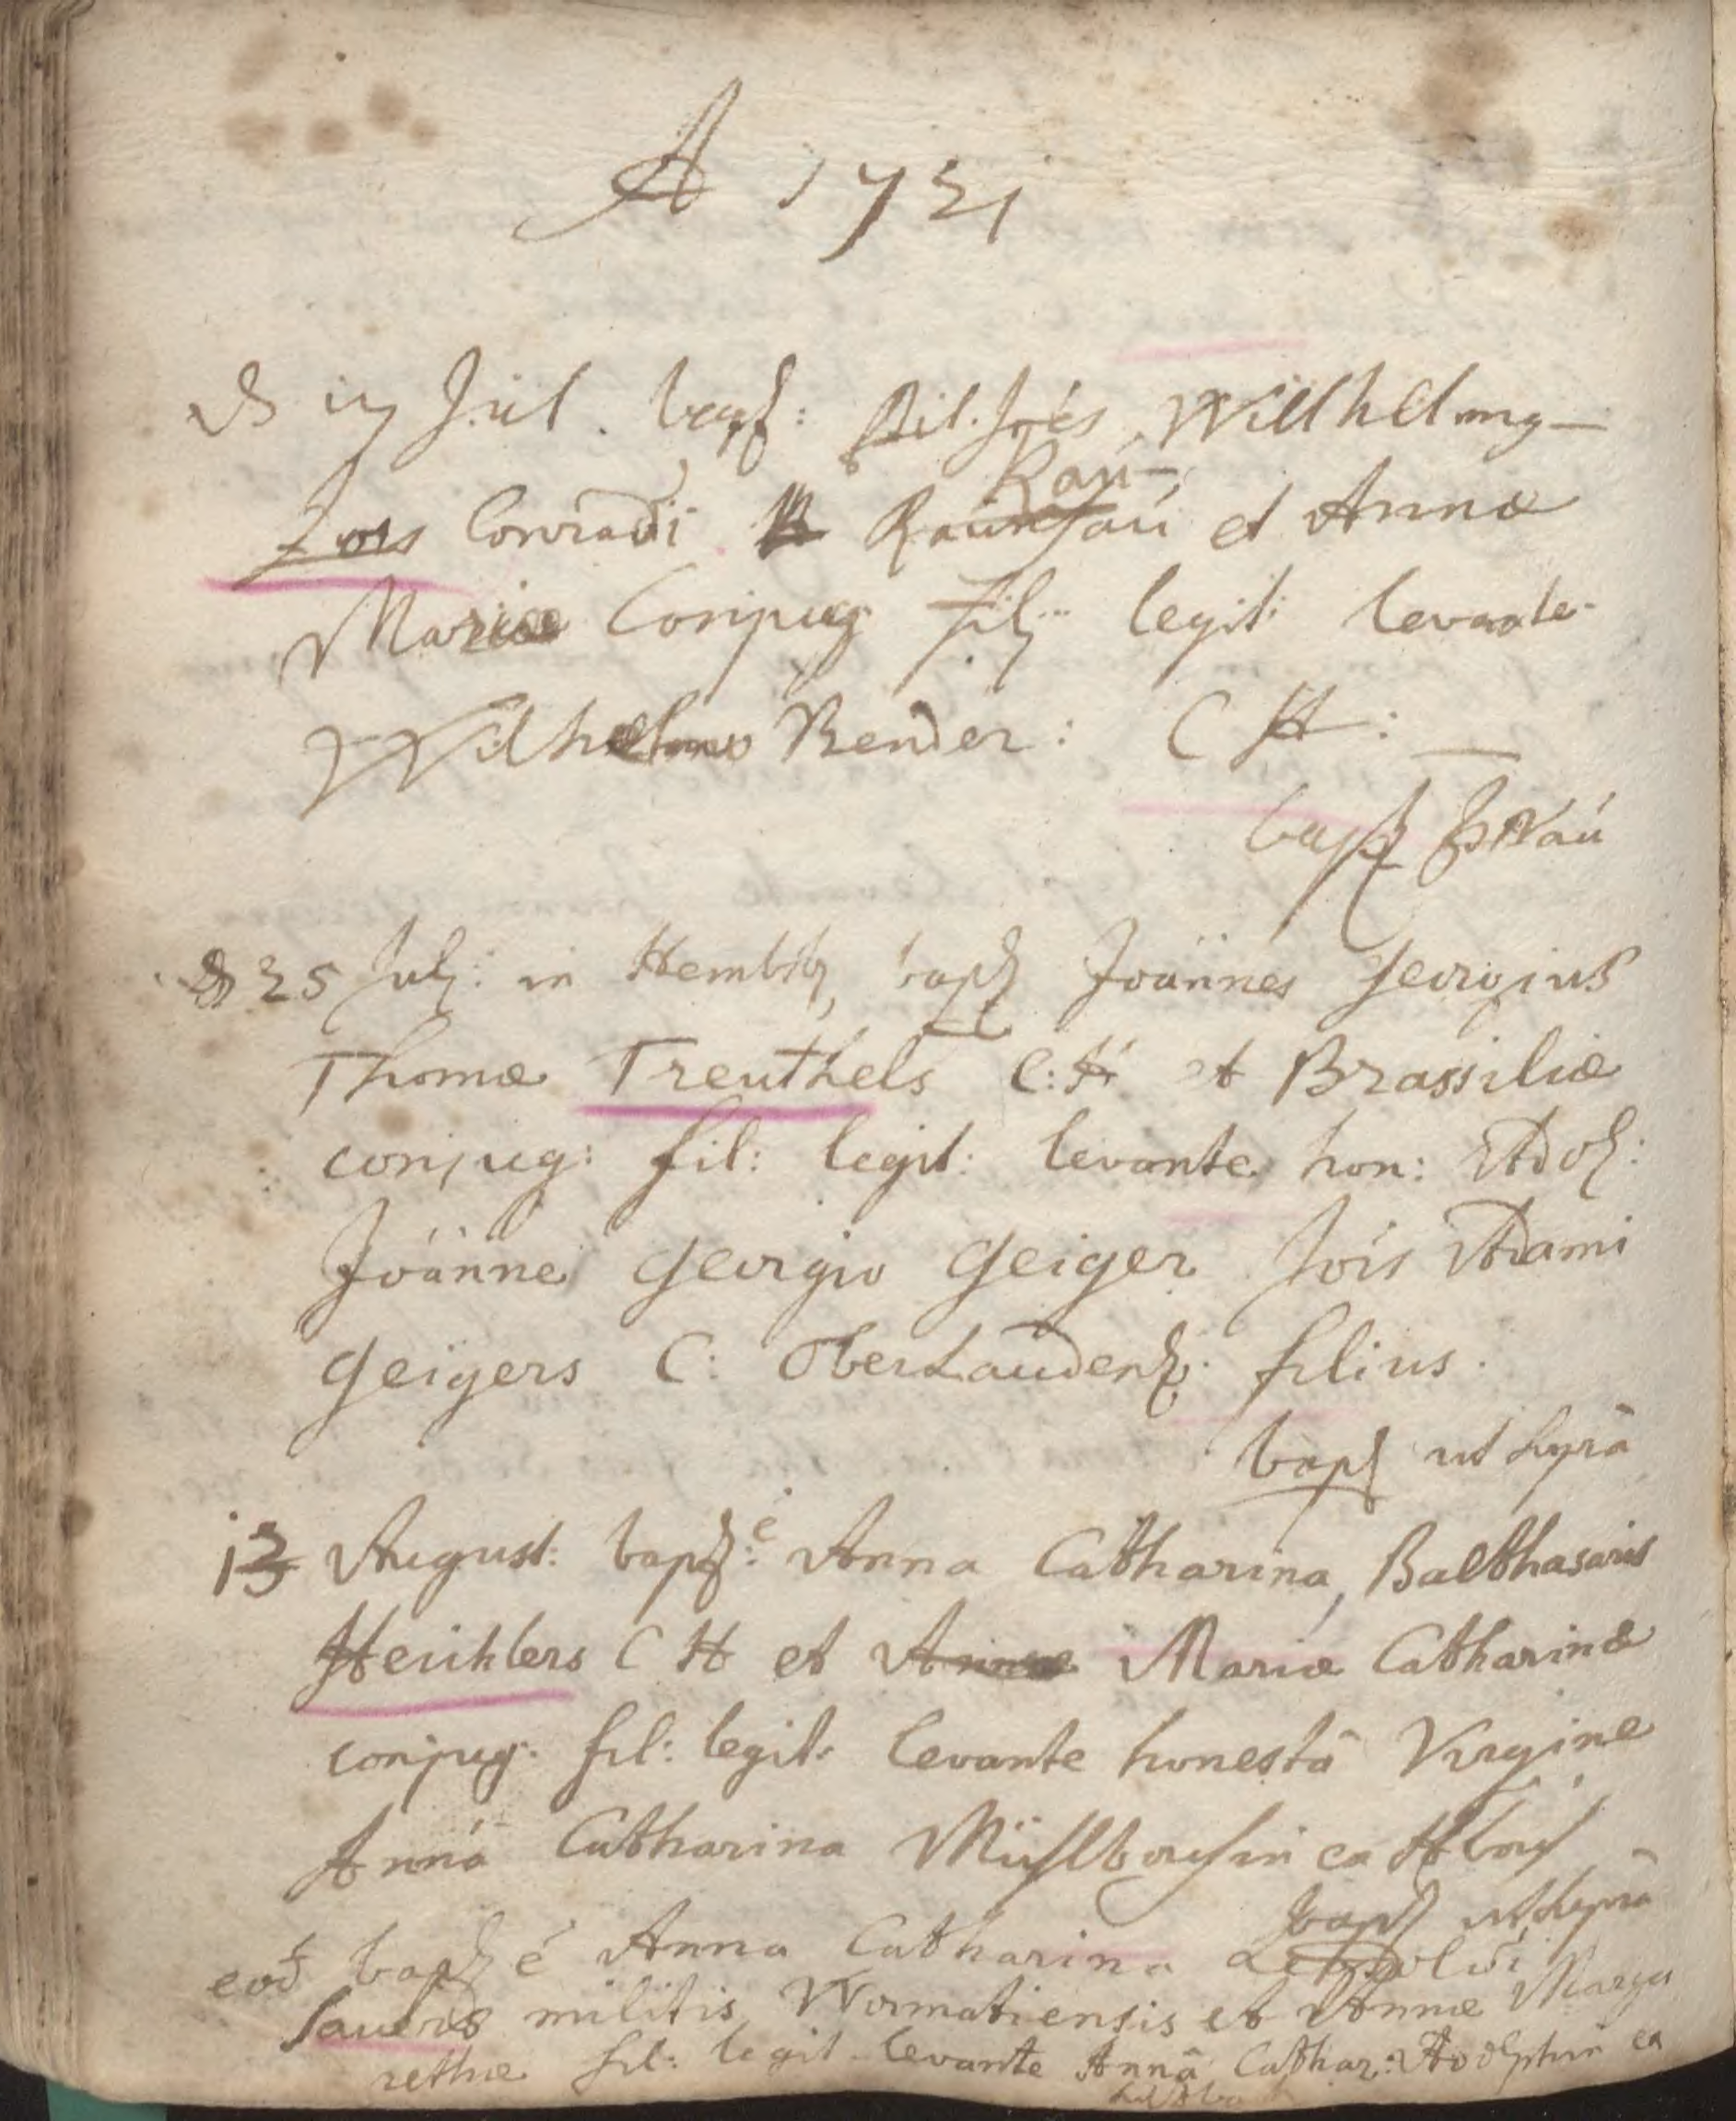 A 1721
D 17 Jul. bapt: fil. Joës Willhelmg
Rau-
Jois Conradi Raunsau et Annæ
Mariæ Conjug: filg: legit: levante
Wilhelmo Bender: C H:
bapt J Nau
D 25 Julg: in Hembg bapt Joännes Georgius
Thomæ Treuthels C: H et Brassiliæ
conjug: fil: legit: levante hon: Adol:
Joänne Georgio Geiger Jois Adami
Geigers C: OberLaudenb: filius.
bapt ut suprã
13 August: bapt: ẽ Anna Catharina, Balthasaris
Heuhlers C H et Annæ Mariæ Catharinæ
conjug: fil: legit: levante honestâ Virgine
Annâ Catharina ex H
bapt ut suprã
eod bapt ẽ Anna Catharina Leopoldi
Sauers militis Wormatiensis et Annæ Marga
rethæ fil: legit levante Annâ Cathar: ex